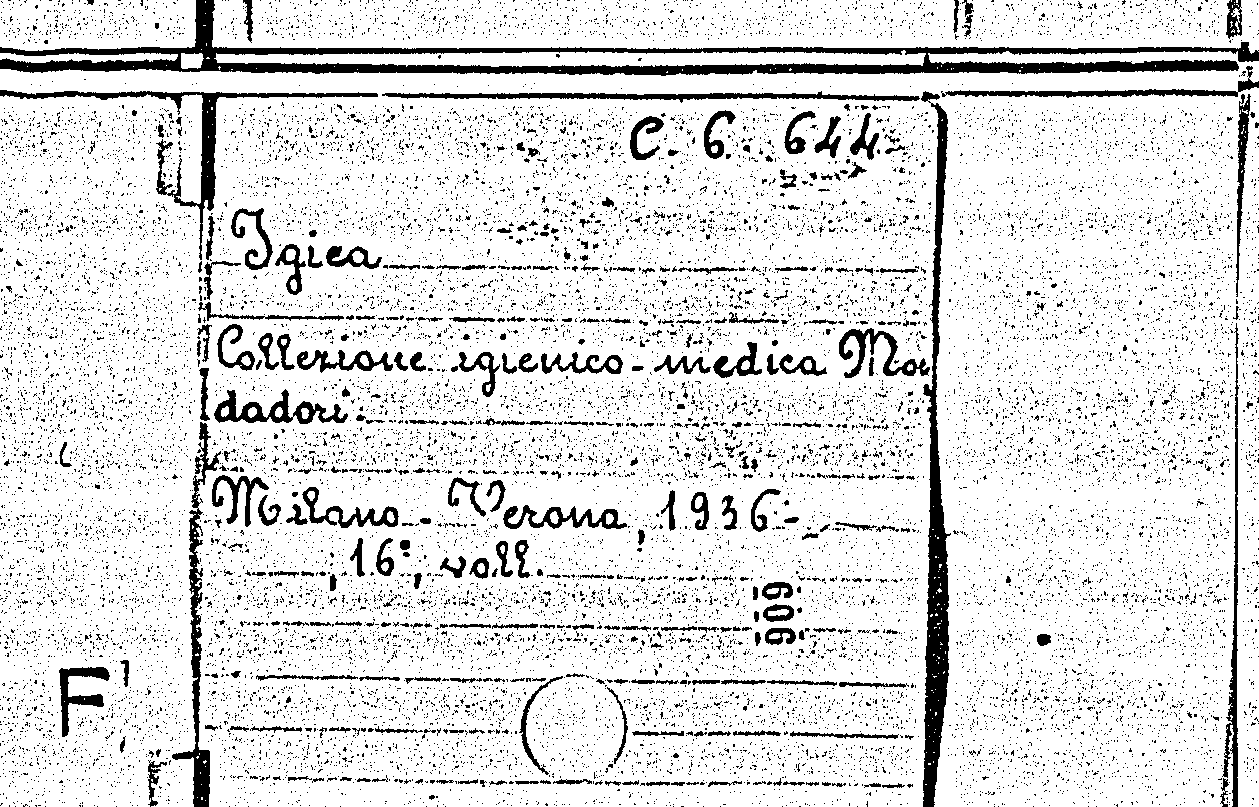 C. 6. 644
Igiea
Collezione igienico-medica Mon
dadori.
Milano - Verona, 1936-
, 16°; voll.
909
F